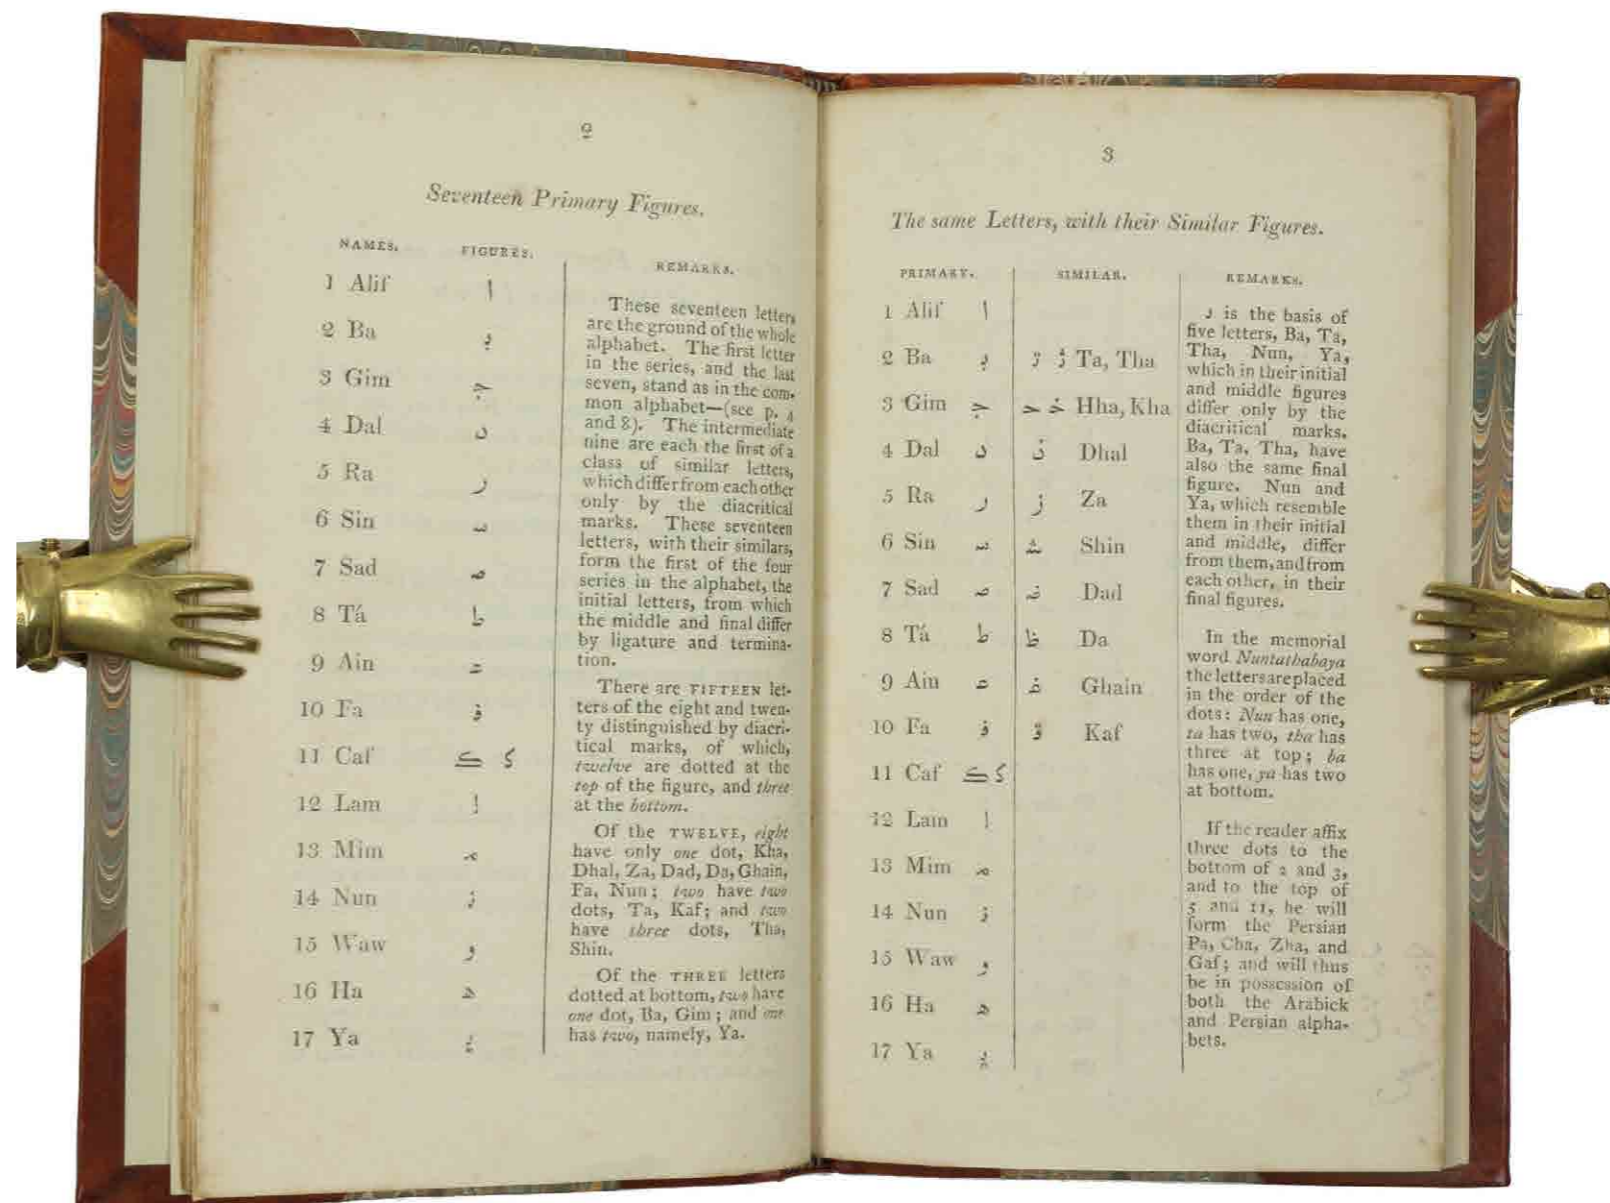 2
Seventeen Primary Figures.
NAMES. FIGURES. REMARKS.
1 Alif ا
2 Ba
3 Gim
4 Dal د
5 Ra ر
6 Sin
7 Sad
8 Tá ط
9 Ain
10 Fa
11 Caf
12 Lam
13 Mim
14 Nun
15 Waw و
16 Ha
17 Ya
These seventeen letters
are the ground of the whole
alphabet. The first letter
in the series, and the last
seven, stand as in the com-
mon alphabet—(see p. 4
and 8). The intermediate
nine are each the first of a
class of similar letters,
which differ from each other
only by the diacritical
marks. These seventeen
letters, with their similars,
form the first of the four
series in the alphabet, the
initial letters, from which
the middle and final differ
by ligature and termina-
tion.
There are FIFTEEN let-
ters of the eight and twen-
ty distinguished by diacri-
tical marks, of which,
twelve are dotted at the
top of the figure, and three
at the bottom.
Of the TWELVE, eight
have only one dot, Kha,
Dhal, Za, Dad, Da, Ghain,
Fa, Nun; two have two
dots, Ta, Kaf; and two
have three dots, Tha,
Shin.
Of the THREE letters
dotted at bottom, two have
one dot, Ba, Gim; and one
has two, namely, Ya.
3
The same Letters, with their Similar Figures.
PRIMARY. SIMILAR. REMARKS.
1 Alif ا
2 Ba Ta, Tha
3 Gim Hha, Kha
4 Dal د ذ Dhal
5 Ra ر ز Za
6 Sin Shin
7 Sad Dad
8 Tá ط ظ Da
9 Ain Ghain
10 Fa Kaf
11 Caf
12 Lam
13 Mim
14 Nun
15 Waw و
16 Ha
17 Ya
is the basis of
five letters, Ba, Ta,
Tha, Nun, Ya,
which in their initial
and middle figures
differ only by the
diacritical marks.
Ba, Ta, Tha, have
also the same final
figure. Nun and
Ya, which resemble
them in their initial
and middle, differ
from them, and from
each other, in their
final figures.
In the memorial
word Nuntathabaya
the letters are placed
in the order of the
dots: Nun has one,
ta has two, tha has
three at top; ba
has one, ya has two
at bottom.
If the reader affix
three dots to the
bottom of 2 and 3,
and to the top of
5 and 11, he will
form the Persian
Pa, Cha, Zha, and
Gaf; and will thus
be in possession of
both the Arabick
and Persian alpha-
bets.